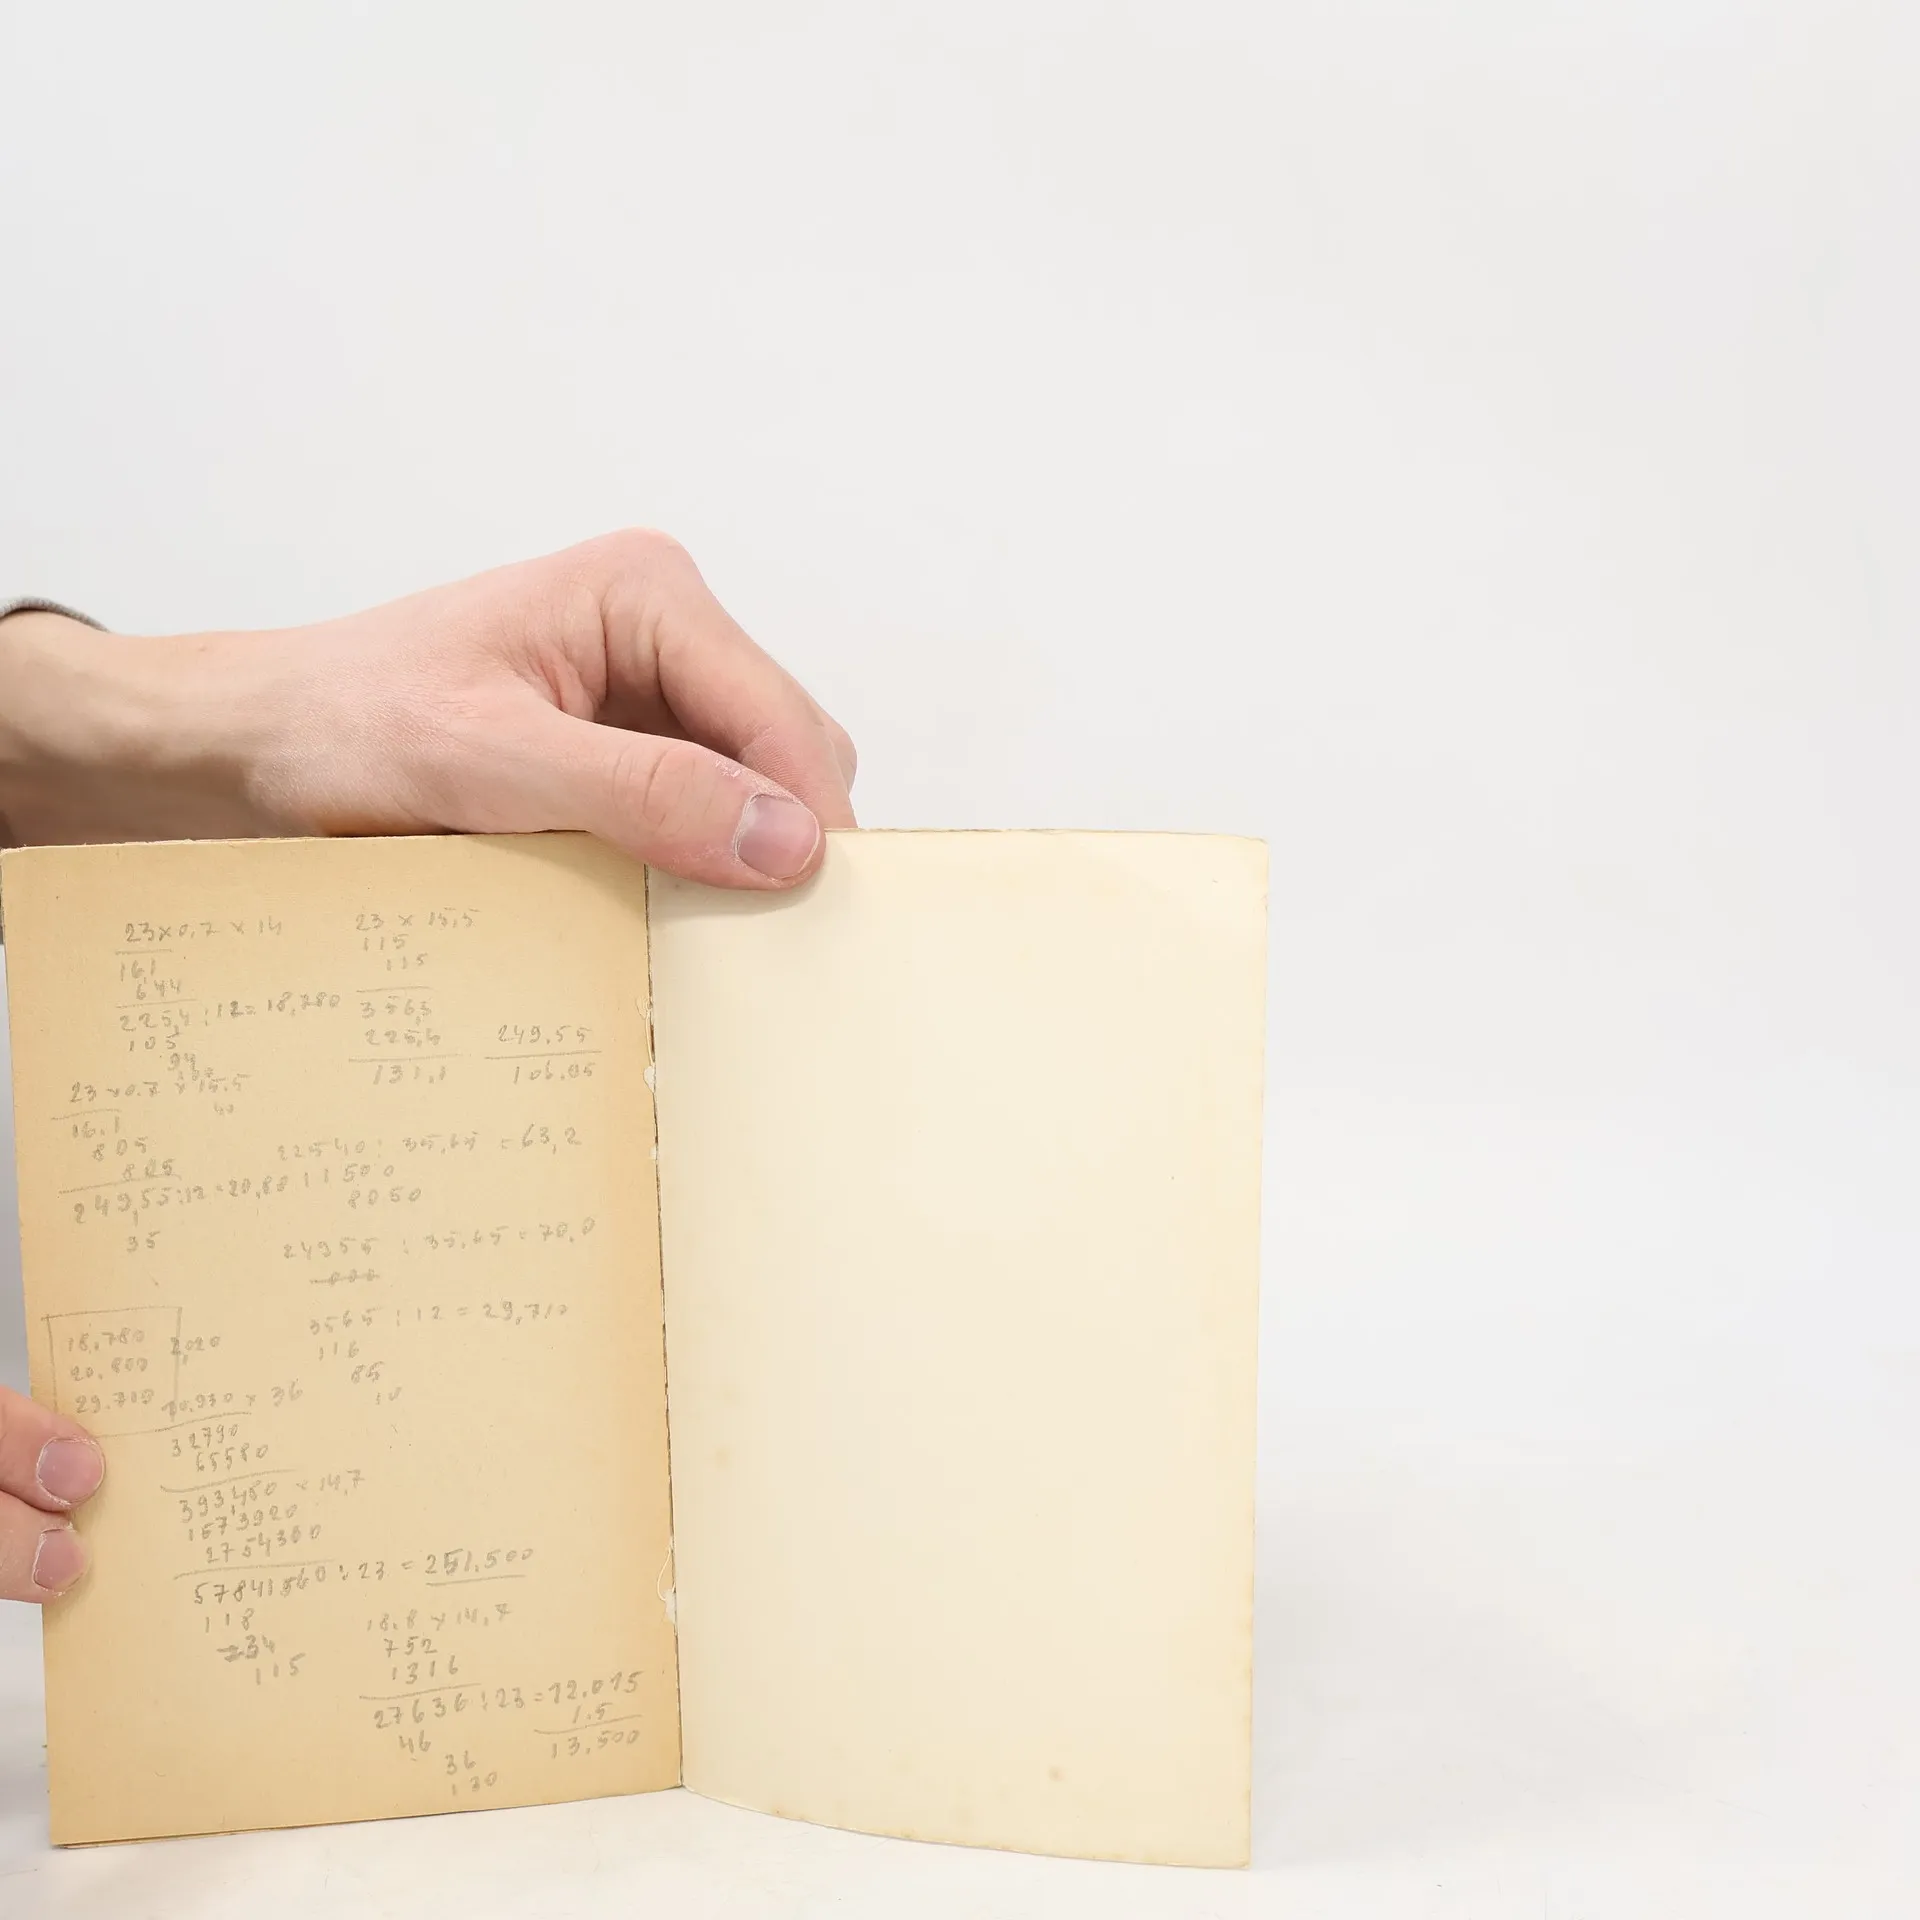 23×0.7 × 14
16,1
644
225,4 : 12 = 18,780
105
94
23 × 15,5
115
115
356,5
225,4
131,1
249.55
106.95
23 × 0.7 × 15.5
16.1
805
805
249,55 : 12 = 20,80
95
22540 : 35,65 = 63,2
11500
8050
24955 : 35,65 = 70,0
000
3565 : 12 = 29,710
116
85
10
18,780
20.800
29.710
2,020
10.930 × 36
32790
65580
393480 × 14,7
1573920
2754360
57841560 : 23 = 251.500
118
34
115
18.8 × 14,7
752
1316
27636 : 23 = 12.015
46
36
130
1.5
13.500